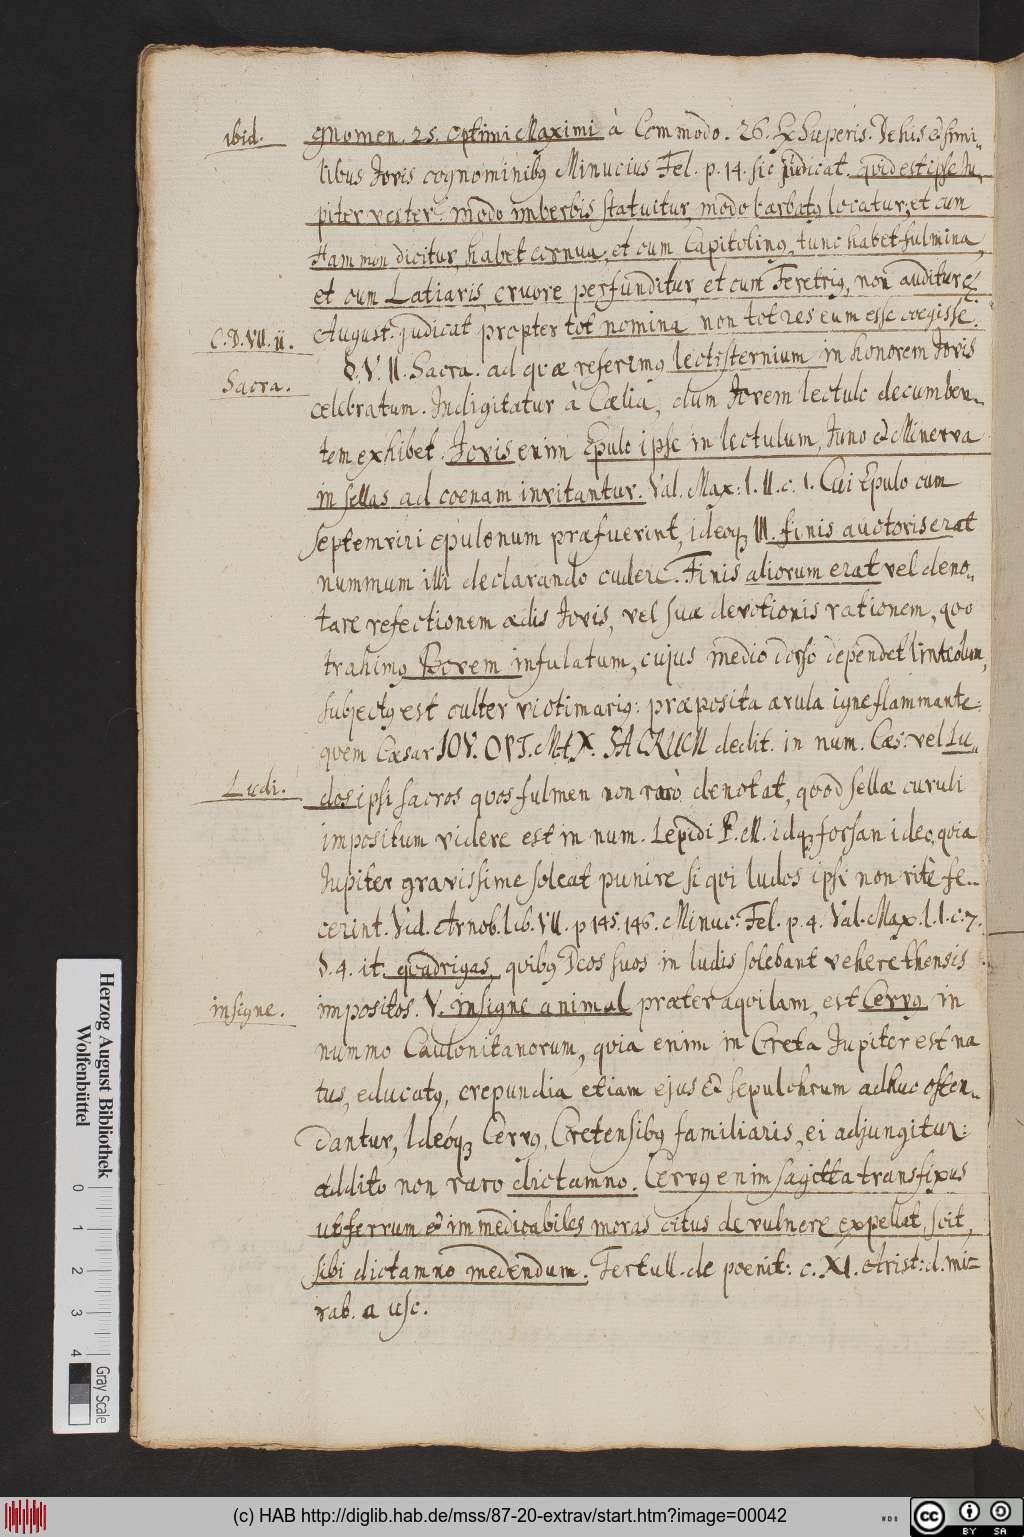 ibid.
gnomen. 25. Optimi Maximi à Commodo. 26. Exsuperis. De his & simi-
libus Jovis cognominibꝯ Minucius Fel. p. 14. sic judicat. quid est ipse Ju-
piter vester: modo imberbis statuitur, modo barbatꝯ locatur, et cum
Hammon dicitur, habet cornua, et cum Capitolinꝯ, tunc habet fulmina,
et cum Latiaris, cruore perfunditur, et cum Feretriꝯ, non auditur &c.
C.D. VII. ii.
August. judicat propter tot nomina non tot res eum esse coegisse.
Sacra.
§. V. II. Sacra. ad quæ referimꝯ lectisternium in honorem Jovis
celebratum. Indigitatur à Cælia, dum Jovem lectulo decumben-
tem exhibet. Jovis enim Epulo ipse in lectulum, Juno & Minerva
in sellas ad coenam invitantur. Val. Max: l. II. c. 1. Cui Epulo cum
septemviri epulonum præfuerint, ideoqꝫ III. finis auctoris erat
nummum illi declarando cudere. Finis aliorum erat vel deno-
tare refectionem ædis Jovis, vel suæ devotionis rationem, quo
trahimꝯ Bovem infulatum, cujus medio dorso dependet linteolum,
subjectꝯ est culter victimariꝯ: præposita arula igne flammante:
quem Cæsar IOV. OPT. MAX. SACRUM dedit. in num. Cæs. vel Lu-
Ludi.
dos ipsi sacros quos fulmen non rarò denotat, quod sellæ curuli
impositum videre est in num. Lepidi P. M. idqꝫ forsan ideo, quia
Jupiter gravissime soleat punire si qui ludos ipsi non ritè fe-
cerint. Vid. Arnob. lib. VII. p 145. 146. Minuc. Fel. p. 4. Val. Max. l. I. c. 7.
§. 4. it. quadrigas, quibꝯ Deos suos in ludis solebant vehere thensis
insigne.
impositos. V. insigne animal præter aquilam, est Cervꝯ in
nummo Caulonitanorum, quia enim in Creta Jupiter est na
tus, educatꝯ, crepundia etiam ejus & sepulchrum adhuc osten-
dantur, Ideóqꝫ Cervꝯ, Cretensibꝯ familiaris, ei adjungitur:
addito non raro dictamno. Cervꝯ enim sagitta transfixus
ut ferrum & immedicabiles moras citus de vulnere expellat, scit,
sibi dictamno medendum. Tertull. de poenit: c. XI. Arist: d. mi-
rab. a usc.
Herzog August Bibliothek
Wolfenbüttel
0 1 2 3 4
Gray Scale
(c) HAB http://diglib.hab.de/mss/87-20-extrav/start.htm?image=00042
cc BY SA